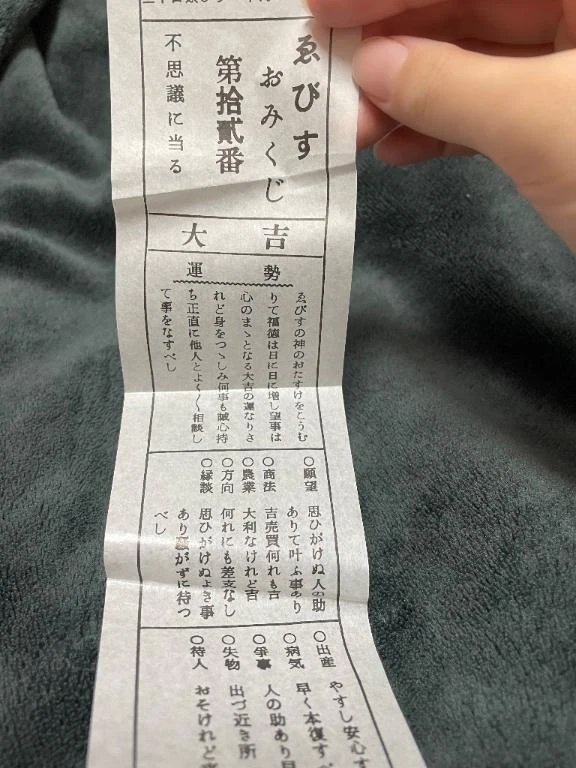 ゑびす
おみくじ
第拾貳番
不思議に当る
大吉
運勢
ゑびすの神のおたすけをこうむ
りて福徳は日に日に増し望事は
心のまゝとなる大吉の運なりさ
れど身をつゝしみ何事も誠心持
ち正直に他人とよく〱相談し
て事をなすべし
○願望 思ひがけぬ人の助
ありて叶ふ事あり
○商法 吉売買何れも吉
○農業 大利なけれど吉
○方向 何れにも差支なし
○縁談 思ひがけぬよき事
あり騒がずに待つ
べし
○出産 やすし安心す
○病気 早く本復すべ
○争事 人の助あり
○失物 出づ近き所
○待人 おそけれど